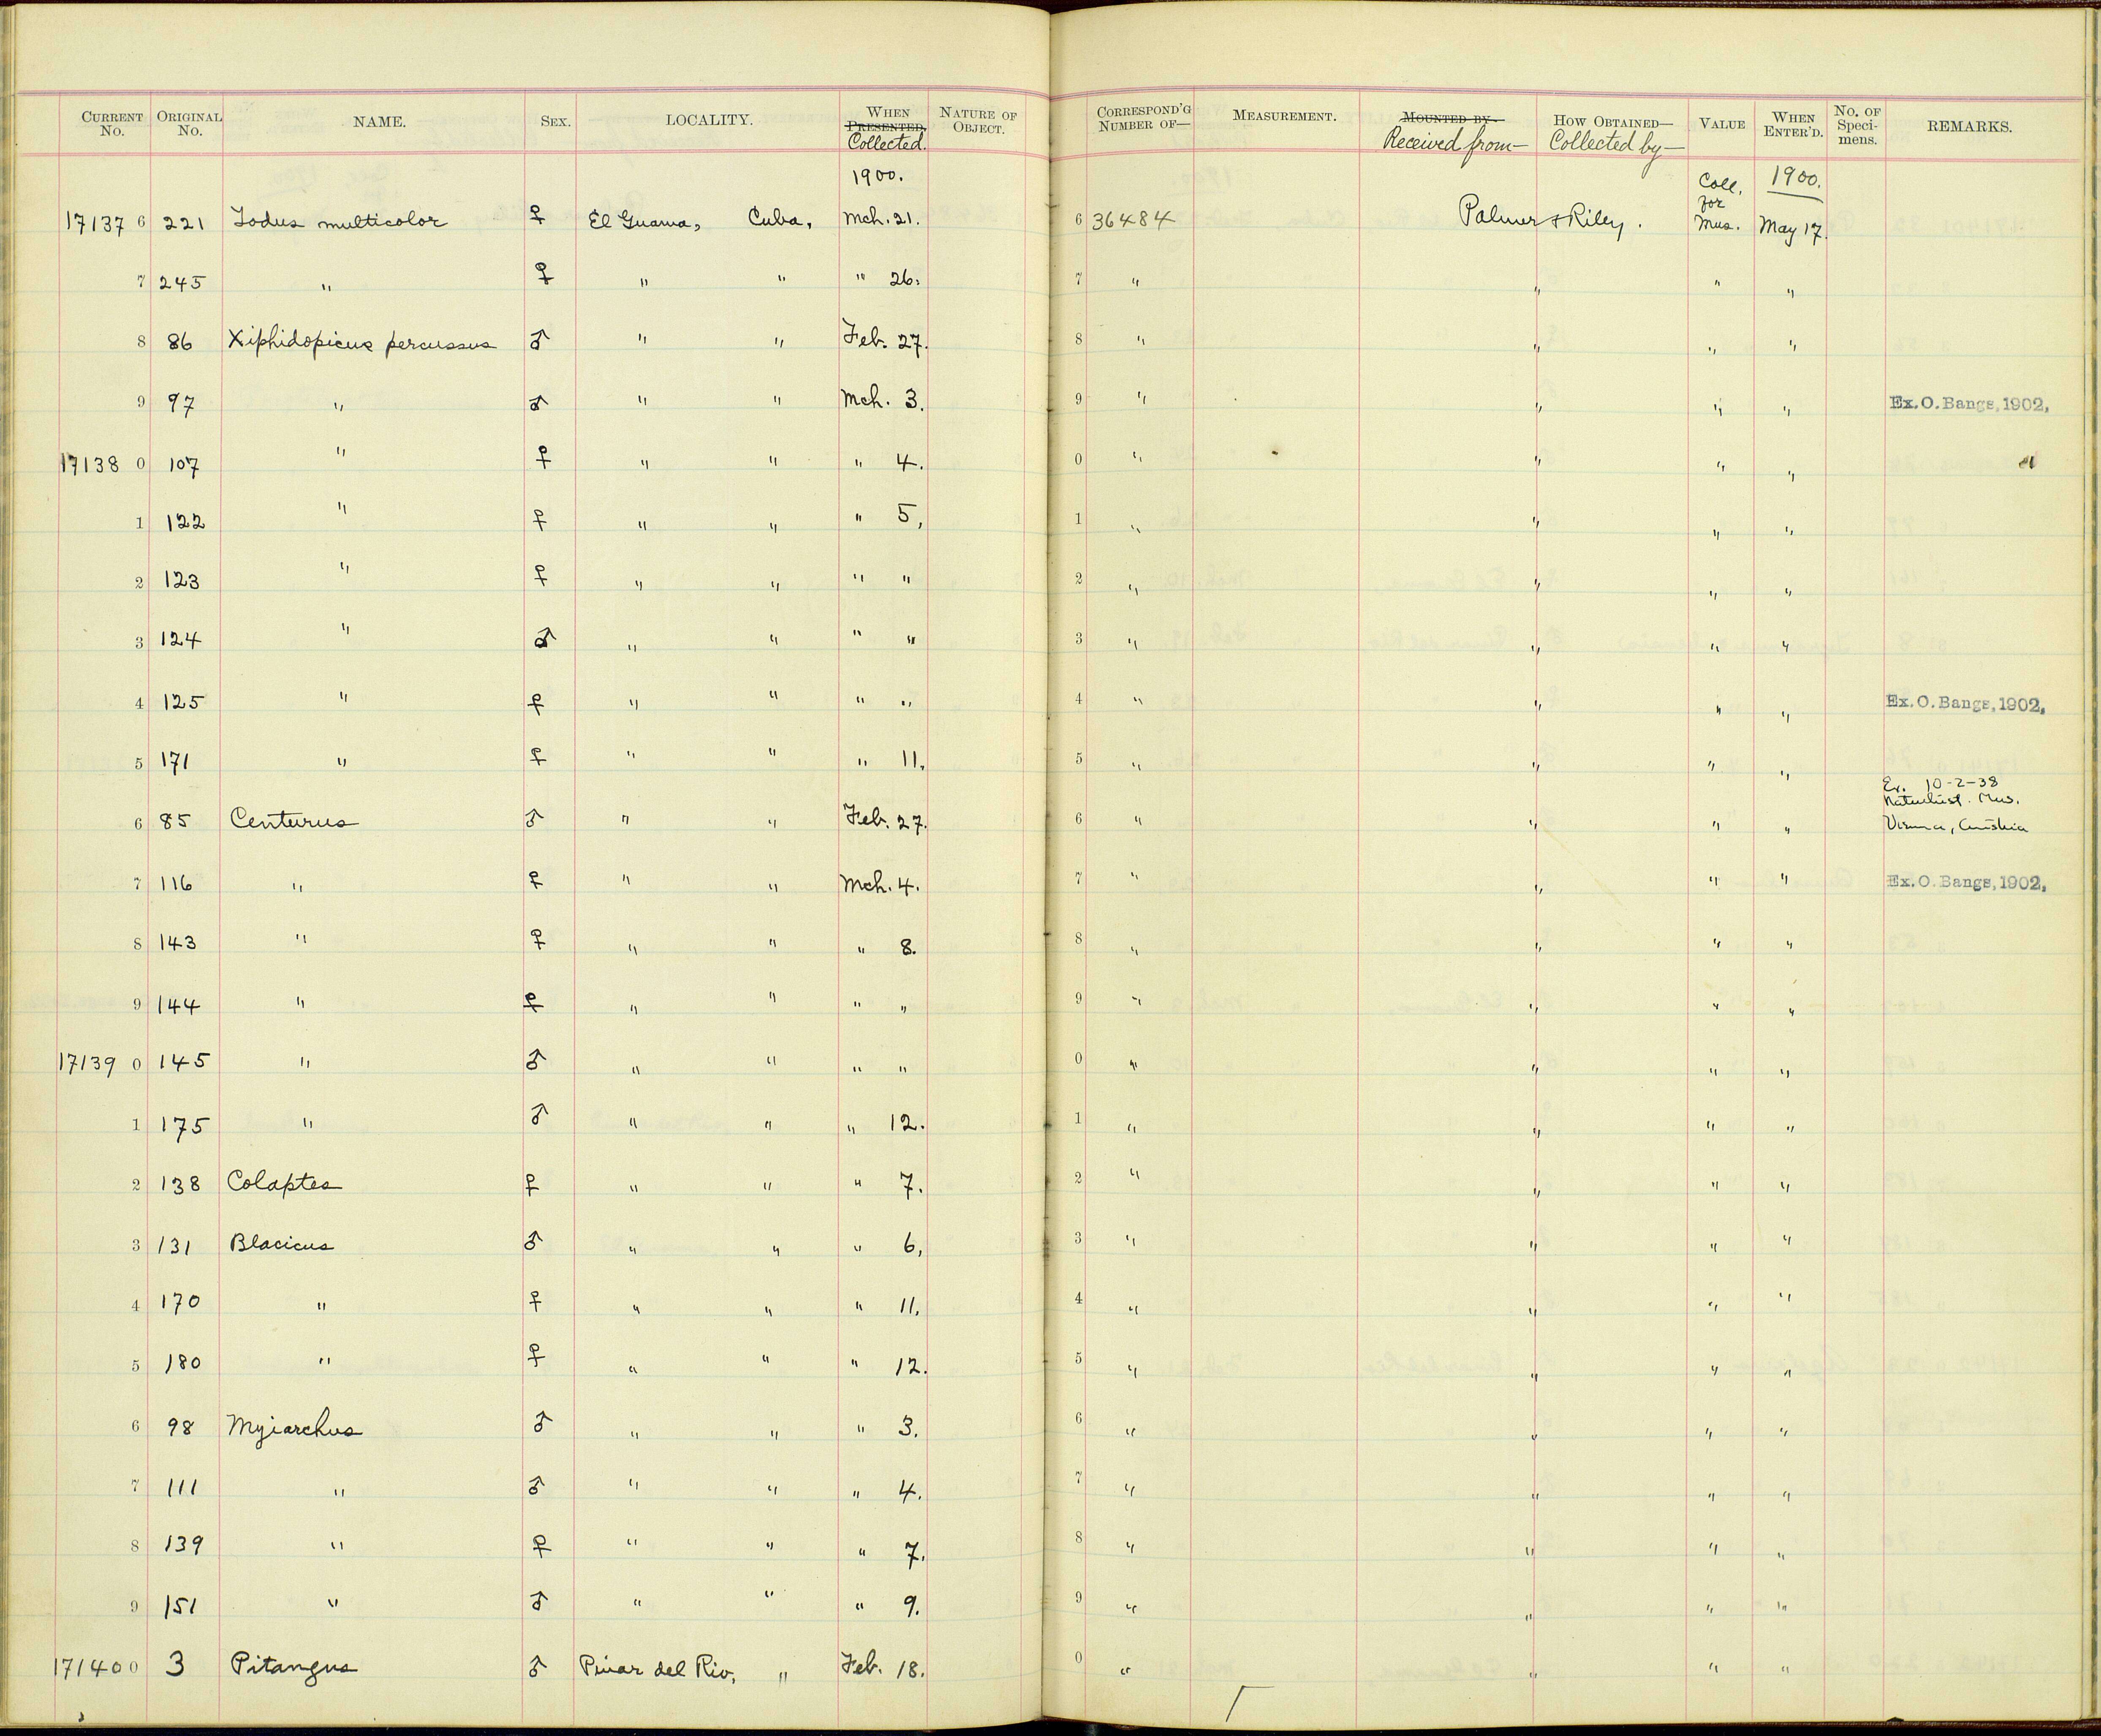 CURRENT No. ORIGINAL No. NAME. SEX. LOCALITY. WHEN PRESENTED. Collected. NATURE OF OBJECT. CORRESPOND'G NUMBER OF— MEASUREMENT. MOUNTED BY— Received from— HOW OBTAINED— Collected by— VALUE WHEN ENTER'D. No. OF Specimens. REMARKS.
1900. Coll. for 1900.
17137 6 221 Todus multicolor ♀ El Guama, Cuba, Mch. 21. 6 36484 Palmer & Riley. Mus. May 17.
7 245 " ♀ " " " 26. 7 " " " "
8 86 Xiphidopicus percussus ♂ " " Feb. 27. 8 " " " "
9 97 " ♂ " " Mch. 3. 9 " " " " Ex. O. Bangs, 1902,
17138 0 107 " ♀ " " " 4. 0 " " " " "
1 122 " ♀ " " " 5, 1 " " " "
2 123 " ♀ " " " " 2 " " " "
3 124 " ♂ " " " " 3 " " " "
4 125 " ♀ " " " " 4 " " " " Ex. O. Bangs, 1902,
5 171 " ♀ " " " 11. 5 " " " "
Ex. 10-2-38
Naturhist. Mus.
6 85 Centurus ♂ " " Feb. 27. 6 " " " " Vienna, Austria
7 116 " ♀ " " Mch. 4. 7 " " " " Ex. O. Bangs, 1902,
8 143 " ♀ " " " 8. 8 " " " "
9 144 " ♀ " " " " 9 " " " "
17139 0 145 " ♂ " " " " 0 " " " "
1 175 " ♂ " " " 12. 1 " " " "
2 138 Colaptes ♀ " " " 7. 2 " " " "
3 131 Blacicus ♂ " " " 6, 3 " " " "
4 170 " ♀ " " " 11. 4 " " " "
5 180 " ♀ " " " 12. 5 " " " "
6 98 Myiarchus ♂ " " " 3. 6 " " " "
7 111 " ♂ " " " 4. 7 " " " "
8 139 " ♀ " " " 7. 8 " " " "
9 151 " ♂ " " " 9. 9 " " " "
17140 0 3 Pitangus ♂ Pinar del Rio, " Feb. 18. 0 " " " "